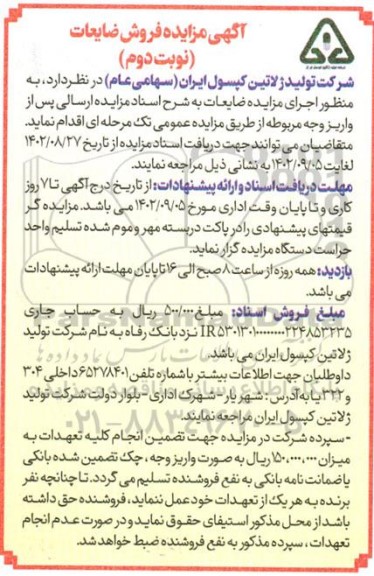 آگهی مزایده فروش ضایعات
(نوبت دوم)
شرکت تولید ژلاتین کپسول ایران (سهامی عام) در نظر دارد، به
منظور اجرای مزایده ضایعات به شرح اسناد مزایده ارسالی پس از
واریز وجه مربوطه از طریق مزایده عمومی تک مرحله ای اقدام نماید.
متقاضیان می توانند جهت دریافت اسناد مزایده از تاریخ ۱۴۰۲/۰۸/۲۷
لغایت ۱۴۰۲/۰۹/۰۵ به نشانی ذیل مراجعه نمایند.
مهلت دریافت اسناد و ارائه پیشنهادات: از تاریخ درج آگهی تا ۷ روز
کاری و تا پایان وقت اداری مورخ ۱۴۰۲/۰۹/۰۵ می باشد. مزایده گر
قیمتهای پیشنهادی را در پاکت دربسته مهر و موم شده تسلیم واحد
حراست دستگاه مزایده گزار نماید.
بازدید: همه روزه از ساعت ۸ صبح الی ۱۶ تا پایان مهلت ارائه پیشنهادات
می باشد.
مبلغ فروش اسناد: مبلغ ۵۰۰/۰۰۰ ریال به حساب جاری
نزد بانک رفاه به نام شرکت تولید
ژلاتین کپسول ایران می باشد.
داوطلبان جهت اطلاعات بیشتر با شماره تلفن ۶۵۲۷۸۴۰۱ داخلی ۳۰۴
و ۳۲۲ یا به آدرس: شهریار - شهرک اداری - بلوار دولت شرکت تولید
ژلاتین کپسول ایران مراجعه نمایند.
- سپرده شرکت در مزایده جهت تضمین انجام کلیه تعهدات به
میزان ۱۵۰,۰۰۰,۰۰۰ ریال به صورت واریز وجه، چک تضمین شده بانکی
یا ضمانت نامه بانکی به نفع فروشنده تسلیم می گردد. تا چنانچه نفر
برنده به هر یک از تعهدات خود عمل ننماید، فروشنده حق داشته
باشد از محل مذکور استیفای حقوق نماید و در صورت عدم انجام
تعهدات، سپرده مذکور به نفع فروشنده ضبط خواهد شد.